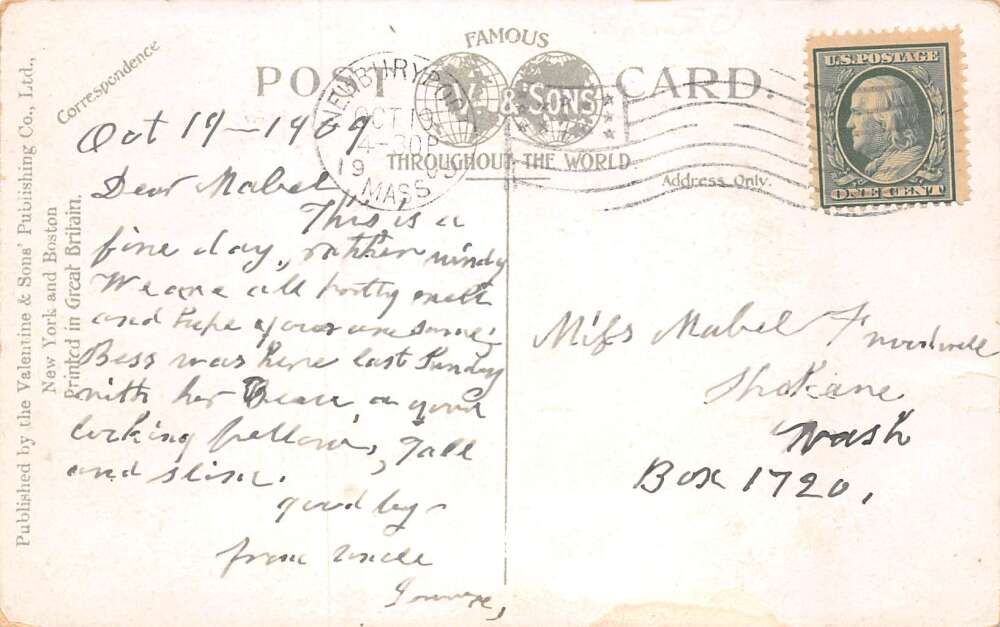 Published by the Valentine & Sons' Publishing Co., Ltd.,
New York and Boston
Printed in Great Britain.
Correspondence
FAMOUS
POST CARD.
V. & SONS
THROUGHOUT THE WORLD
Address Only.
NEWBURYPORT
OCT 19
4-30P
19 09
MASS
U.S. POSTAGE
ONE CENT
Oct 19-1909
Dear Mabel
This is a
fine day, rather windy
We are all pretty well
and hope you are same.
Bess was here last Sunday
with her Beau, a good
looking fellow, Tall
and slim.
good by-
from Uncle
Miss Mabel F
Spokane
Wash
Box 1720,